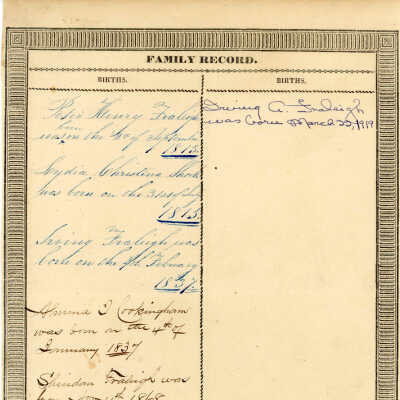 FAMILY RECORD.
BIRTHS.
Peter Henry Fraleigh
born
was on the of September
1815
Lydia Christina Shook
was born on the 31st of
1815
Irving Fraleigh was
born on the of February
1837
Almira D Cookingham
was born on the 4th of
January 1837
Sheridan Fraleigh was
born 1868
BIRTHS.
Irving A. Fraleigh
was born March 22, 1919